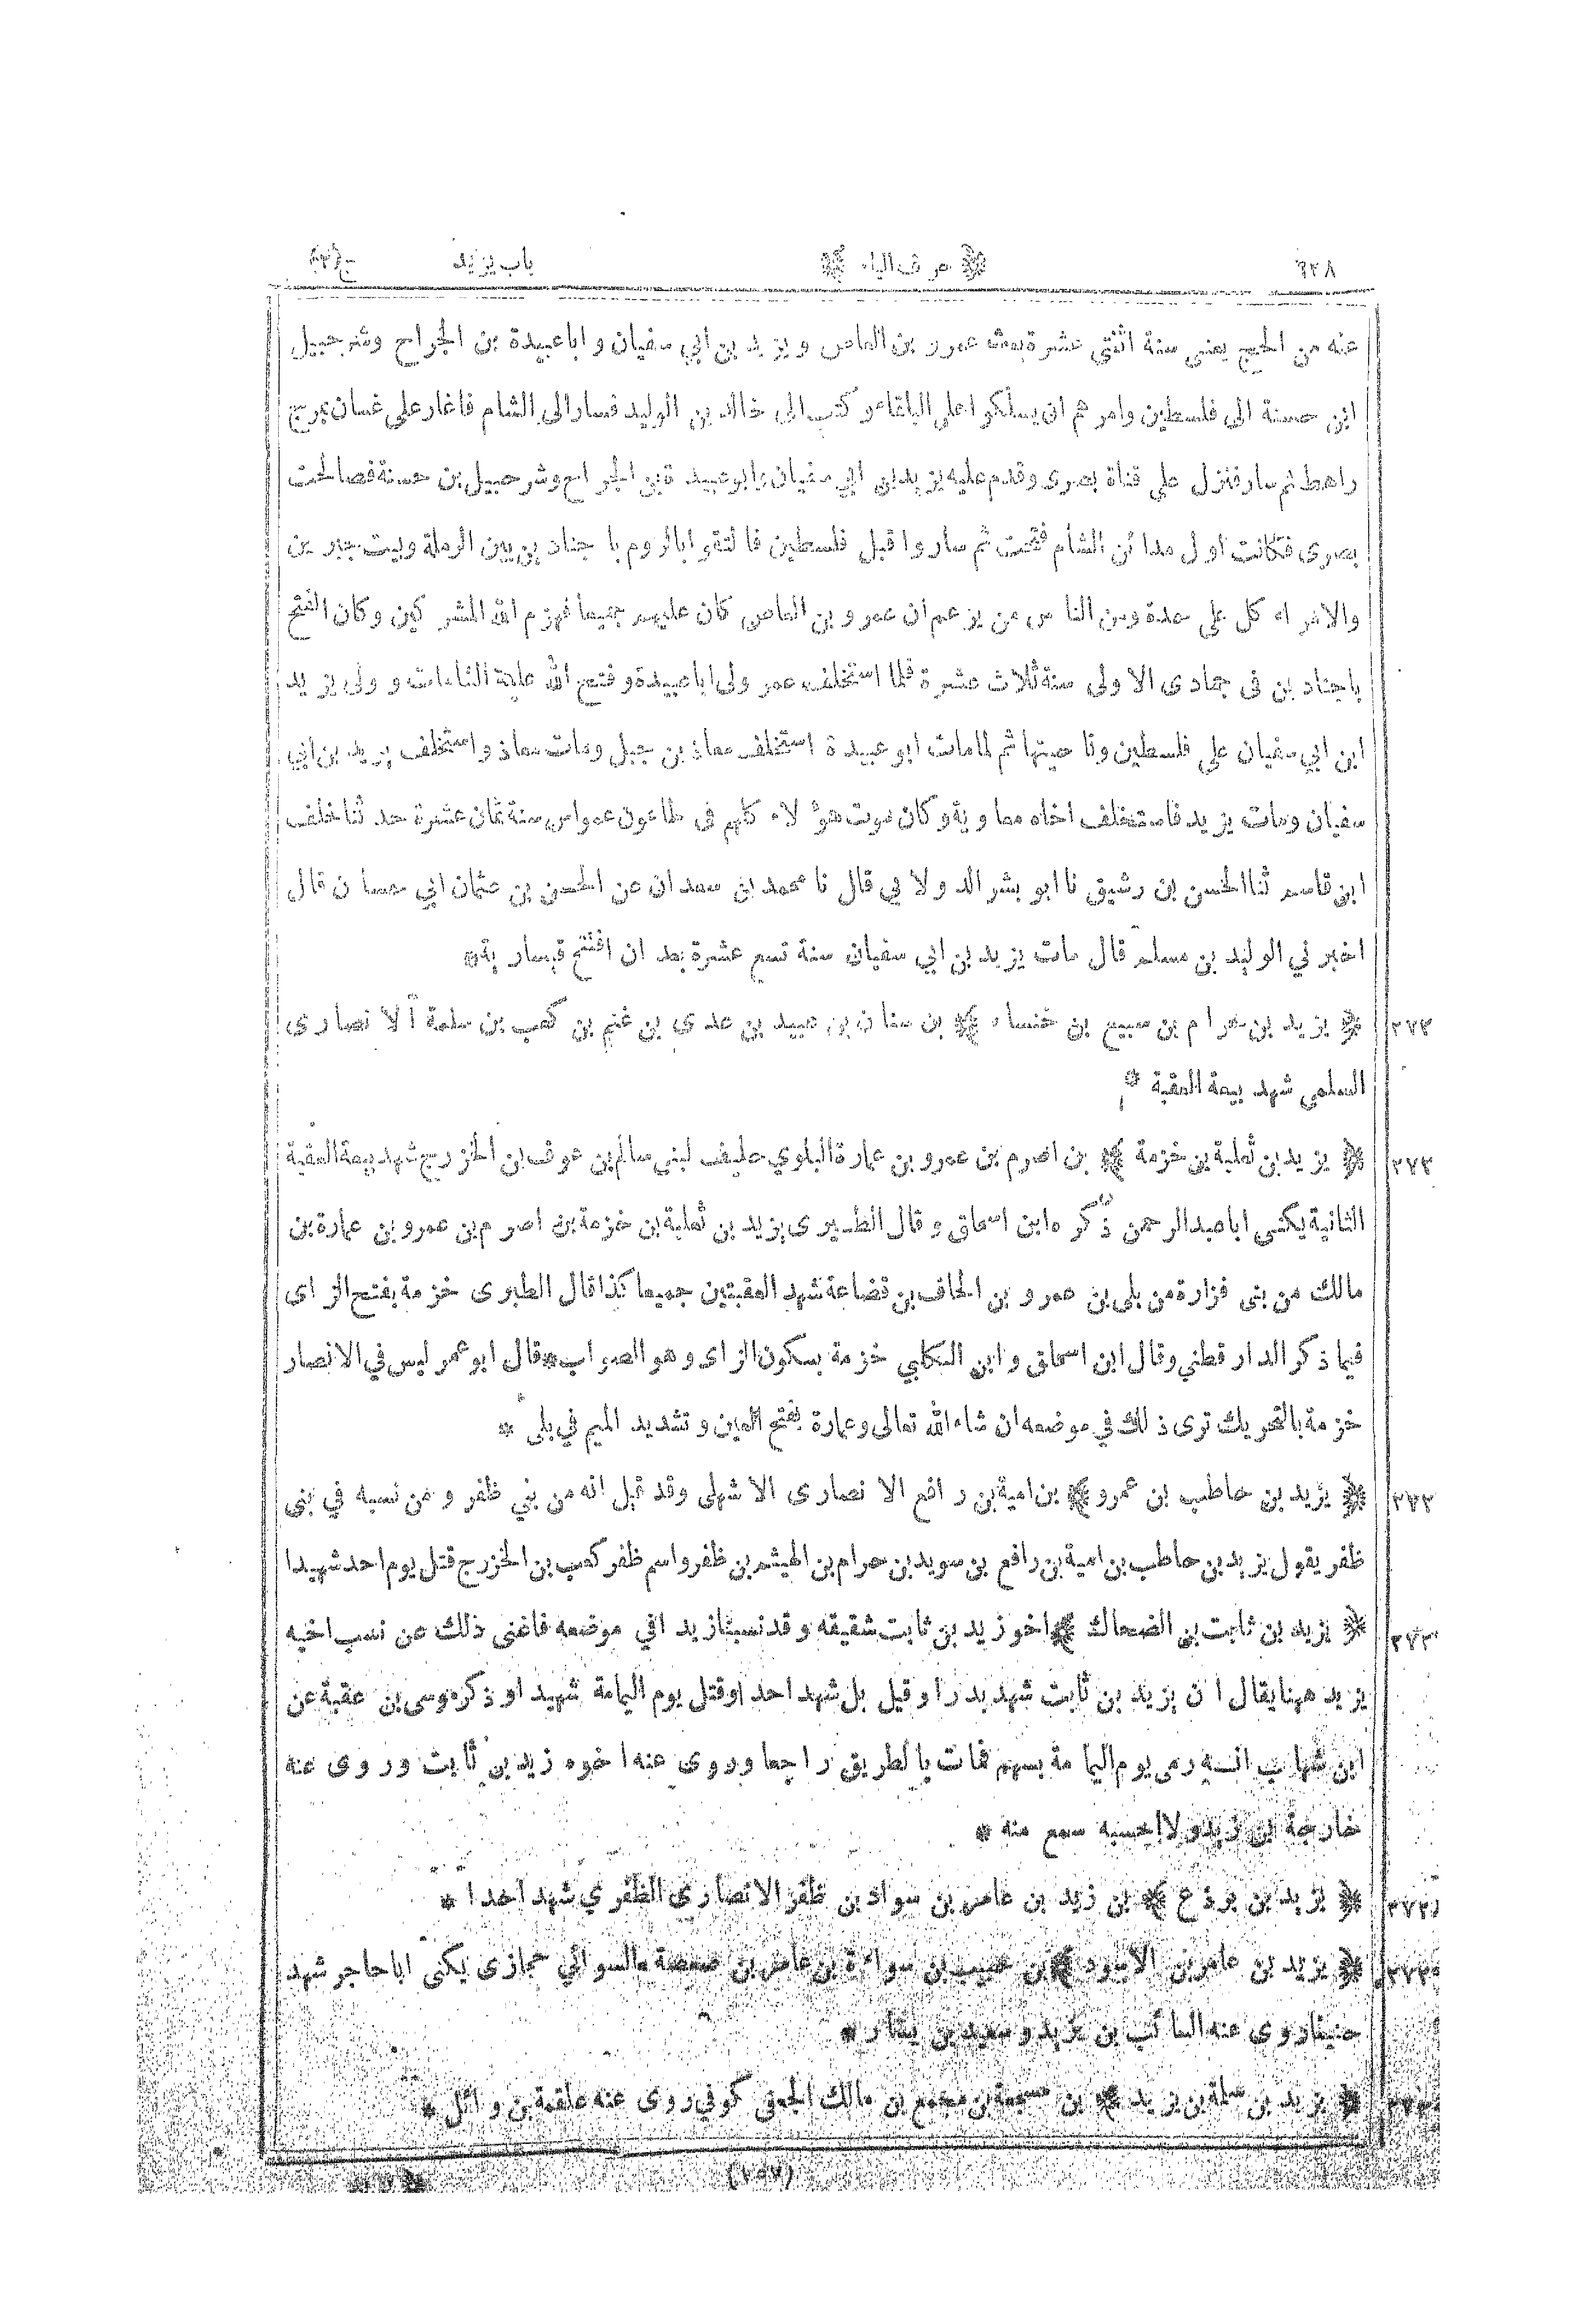 ٦٢٨ ﴿حرف الياء﴾ باب يزيد ج (٢)
عنه من الحج يعنى سنة اثنتى عشرة بعث عمرو بن العاص و يزيد بن ابي سفيان و ابا عبيدة بن الجراح وشرحبيل
ابن حسنة الى فلسطين وامرهم ان يسلكوا على البلقاء و كتب الى خالد بن الوليد فسار الى الشام فاغار على غسان بمرج
راهط ثم سار فنزل على قناة بصرى وقدم عليه يزيد بن ابي سفيان وابو عبيدة بن الجراح وشرحبيل بن حسنة فصالحت
بصرى فكانت اول مدائن الشام فتحت ثم ساروا قبل فلسطين فالتقوا بالروم باجنادين بين الرملة وبيت جبرين
والامراء كل على حدة ومن الناس من يزعم ان عمرو بن العاص كان عليهم جميعا فهزم الله المشركين وكان الفتح
باجنادين فى جمادى الاولى سنة ثلاث عشرة فلما استخلف عمر ولى ابا عبيدة وفتح الله عليه الشامات و ولى يزيد
ابن ابي سفيان على فلسطين وناحيتها ثم لما مات ابو عبيدة استخلف معاذ بن جبل ومات معاذ واستخلف يزيد بن ابي
سفيان ومات يزيد فاستخلف اخاه معاوية وكان موت هؤلاء كلهم فى طاعون عمواس سنة ثمان عشرة حدثنا خلف
ابن قاسم ثنا الحسن بن رشيق نا ابو بشر الدولابي قال نا محمد بن سعدان عن الحسن بن عثمان ابي حسان قال
اخبرني الوليد بن مسلم قال مات يزيد بن ابي سفيان سنة تسع عشرة بعد ان افتتح قيسارية*
٢٧٣ ﴿يزيد بن حرام بن سبيع بن خنساء﴾ بن سنان بن عبيد بن عدى بن غنم بن كعب بن سلمة الانصارى
السلمي شهد بيعة العقبة *
٢٧٣ ﴿يزيد بن ثعلبة بن خزمة﴾ بن اصرم بن عمرو بن عمارة البلوي حليف لبنى سالم بن عوف بن الخزرج شهد بيعة العقبة
الثانية يكنى ابا عبد الرحمن ذكره ابن اسحاق و قال الطبرى يزيد بن ثعلبة بن خزمة بن اصرم بن عمرو بن عمارة بن
مالك من بنى فزارة من بلى بن عمرو بن الحاف بن قضاعة شهد العقبتين جميعا كذا قال الطبرى خزمة بفتح الزاى
فيما ذكر الدار قطني وقال ابن اسحاق وابن الكلبي خزمة بسكون الزاى وهو الصواب* قال ابو عمر ليس في الانصار
خزمة بالتحريك ترى ذلك في موضعه ان شاء الله تعالى وعمارة بفتح العين و تشديد الميم في بلى *
٢٧٣ ﴿يزيد بن حاطب بن عمرو﴾ بن امية بن رافع الانصارى الاشهلى وقد قيل انه من بني ظفر و من نسبه في بنى
ظفر يقول يزيد بن حاطب بن امية بن رافع بن سويد بن حرام بن الهيثم بن ظفر واسم ظفر كعب بن الخزرج قتل يوم احد شهيدا
٢٧٣ ﴿يزيد بن ثابت بن الضحاك﴾ اخو زيد بن ثابت شقيقه وقد نسبنا زيدا في موضعه فاغنى ذلك عن نسب اخيه
يزيد ههنا يقال ان يزيد بن ثابت شهد بدرا وقيل بل شهد احدا وقتل يوم اليمامة شهيدا وذكر موسى بن عقبة عن
ابن شهاب انه رمى يوم اليمامة بسهم فمات بالطريق راجعا وروى عنه اخوه زيد بن ثابت وروى عنه
خارجة بن زيد ولا احسبه سمع منه *
٢٧٣ ﴿يزيد بن برذع﴾ بن زيد بن عامر بن سواد بن ظفر الانصارى الظفري شهد احدا *
٢٧٣ ﴿يزيد بن عامر بن الاسود﴾ بن حبيب بن سواءة بن عامر بن صعصعة السوائي حجازى يكنى ابا حاجر شهد
حنينا روى عنه السائب بن يزيد و سعيد بن يسار *
٢٧٣ ﴿يزيد بن سلمة بن يزيد﴾ بن مشجعة بن مجمع بن مالك الجعفى كوفي روى عنه علقمة بن وائل *
(١٥٧)